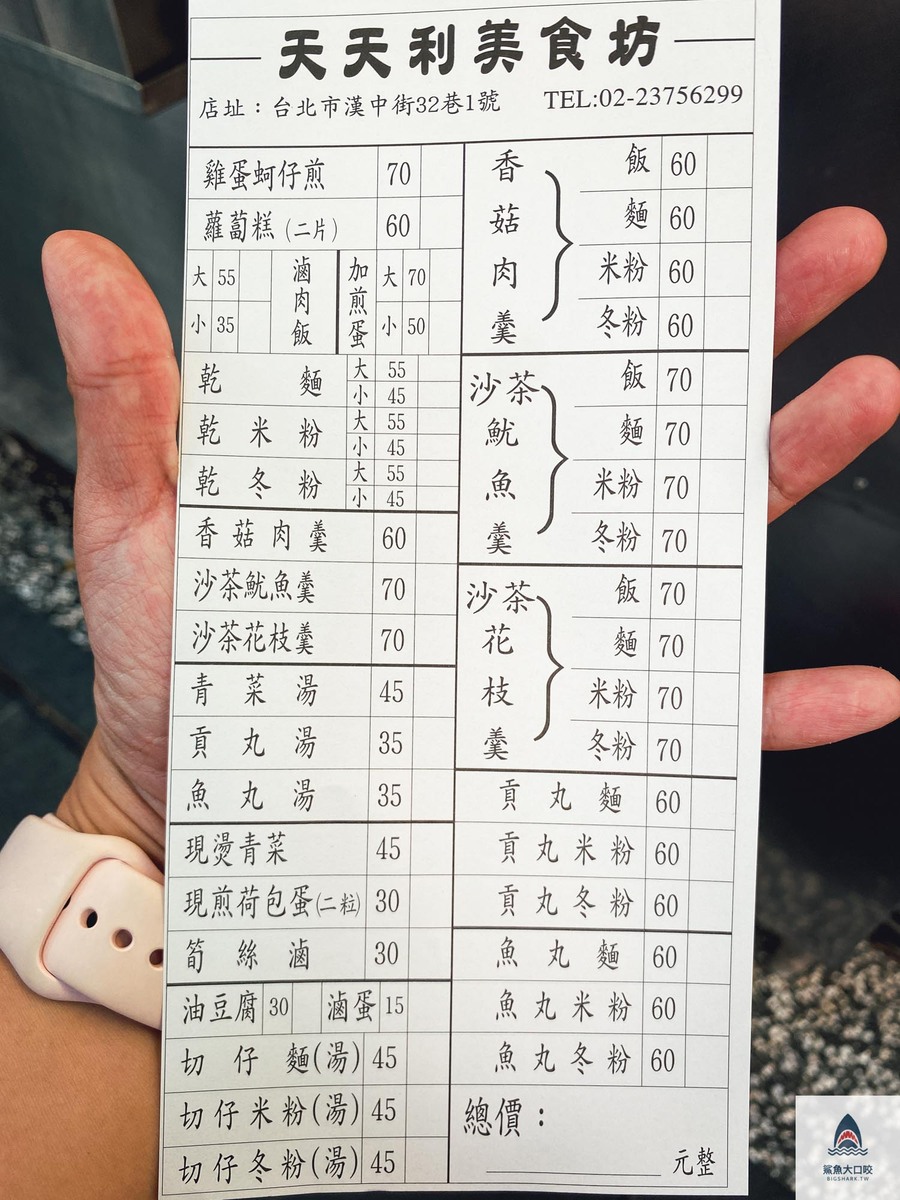 天天利美食坊
店址：台北市漢中街32巷1號 TEL:02-23756299
雞蛋蚵仔煎 70
蘿蔔糕（二片） 60
大 55 滷肉飯 加煎蛋 大 70
小 35 小 50
乾麵 大 55
小 45
乾米粉 大 55
小 45
乾冬粉 大 55
小 45
香菇肉羹 60
沙茶魷魚羹 70
沙茶花枝羹 70
青菜湯 45
貢丸湯 35
魚丸湯 35
現燙青菜 45
現煎荷包蛋(二粒) 30
筍絲滷 30
油豆腐 30 滷蛋 15
切仔麵(湯) 45
切仔米粉(湯) 45
切仔冬粉(湯) 45
香菇肉羹 飯 60
麵 60
米粉 60
冬粉 60
沙茶魷魚羹 飯 70
麵 70
米粉 70
冬粉 70
沙茶花枝羹 飯 70
麵 70
米粉 70
冬粉 70
貢丸麵 60
貢丸米粉 60
貢丸冬粉 60
魚丸麵 60
魚丸米粉 60
魚丸冬粉 60
總價：
元整
鯊魚大口咬
BIGSHARK.TW